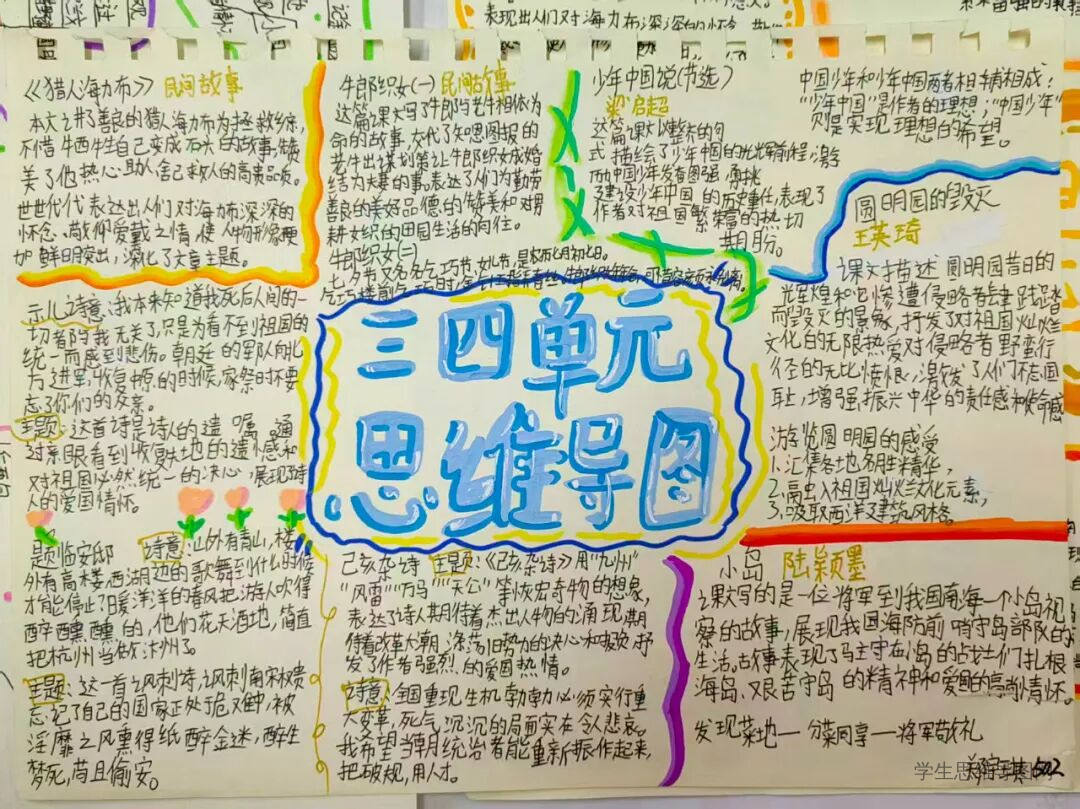 表现出人们对海力布深深的怀念
《猎人海力布》 民间故事
本文讲了善良的猎人海力布为拯救乡亲,
不惜牺牲自己变成石头的故事,赞
美了他热心助人,舍己救人的高贵品质。
世世代代表达出人们对海力布深深的
怀念、敬仰爱戴之情,使人物形象更
加鲜明突出,深化了文章主题。
牛郎织女(一) 民间故事
这篇课文写了牛郎与老牛相依为
命的故事,交代了知恩图报的
老牛出谋划策让牛郎织女成婚
结为夫妻的事。表达了人们为勤劳
善良的美好品德的赞美和对男
耕女织的田园生活的向往。
牛郎织女(二)
七夕节又名乞巧节、女儿节,是农历七月初七日。
少年中国说(节选)
梁启超
这篇课文以整齐的句
式描绘了少年中国的光辉前程,激
励中国少年发奋图强 勇挑
建设少年中国的历史重任,表现了
作者对祖国繁荣富强的热切
期盼。
中国少年和少年中国两者相辅相成:
“少年中国”是作者的理想;“中国少年”
则是实现理想的希望。
圆明园的毁灭
王英琦
课文描述圆明园昔日的
光辉煌和它惨遭侵略者肆虐践踏
而毁灭的景象,抒发了对祖国灿烂
文化的无限热爱对侵略者野蛮行
径的无比愤恨,激发了人们不忘国
耻,增强振兴中华的责任感和使命感
游览圆明园的感受
1.汇集各地名胜精华,
2.融入祖国灿烂文化元素,
3.吸取西洋建筑风格。
三四单元
思维导图
示儿诗意:我本来知道我死后人间的一
切都与我无关了,只是为看不到祖国的
统一而感到悲伤。朝廷的军队向北
方进军,收复中原的时候,家祭时不要
忘了你们的父亲。
主题:这首诗是诗人的遗嘱。通
过亲眼看到收复失地的遗憾和
对祖国必然统一的决心,展现诗
人的爱国情怀。
题临安邸 诗意:山外有青山,楼
外有高楼,西湖边的歌舞到什么时候
才能停止?暖洋洋的春风把游人吹得
醉醺醺的,他们花天酒地,简直
把杭州当做汴州了。
主题:这一首讽刺诗,讽刺南宋权贵
忘记了自己的国家正处于危难中,被
淫靡之风熏得纸醉金迷,醉生
梦死,苟且偷安。
己亥杂诗 主题:《己亥杂诗》用“九州”
“风雷”“万马”“天公”等恢宏奇物的想象,
表达了诗人期待着杰出人物的涌现,期
待着改革大潮、涤荡旧势力的决心和呼欢,抒
发了作者强烈的爱国热情。
诗意:全国重现生机勃勃必须实行重
大变革,死气沉沉的局面实在令人悲哀。
我希望当年统治者能重新振作起来,
把破规,用人才。
小岛 陆颖墨
课文写的是一位将军到我国南海一个小岛视
察的故事,展现我国海防前哨守岛部队的
生活。故事表现了马主守在小岛的战士们扎根
海岛、艰苦守岛的精神和爱国的高尚情怀。
发现菜地—分菜同享—将军敬礼
502